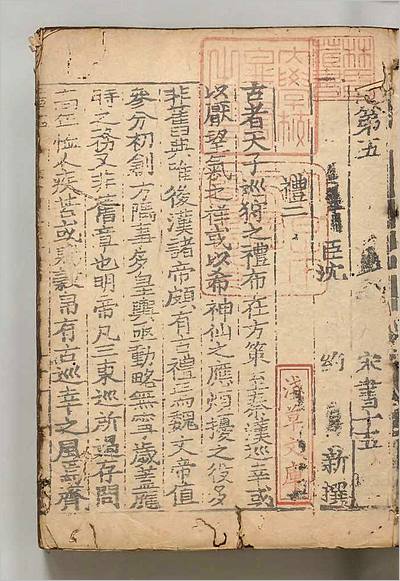 第五 宋書十五
臣沈 約 新撰
禮二
古者天子巡狩之禮布在方策至秦漢巡幸或
以厭望氣之祥或以希神仙之應煩擾之役多
非舊典唯後漢諸帝頗有古禮焉魏文帝值
參分初創方隅事多皇輿亟動略無寧歲蓋應
時之務又非舊章也明帝凡三東巡所過存問
高年恤人疾苦或賜穀帛有古巡幸之風焉齊
淺草文庫